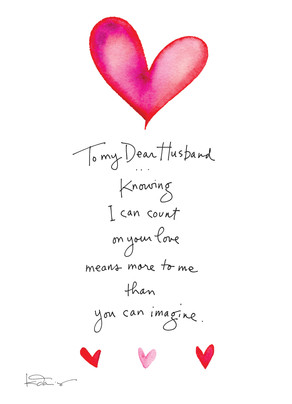 To my Dear Husband
...
Knowing
I can count
on your love
means more to me
than
you can imagine.